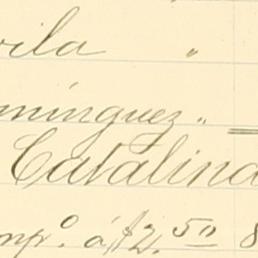 vila "
omínguez "
Catalina
mpº. á $2.50 8